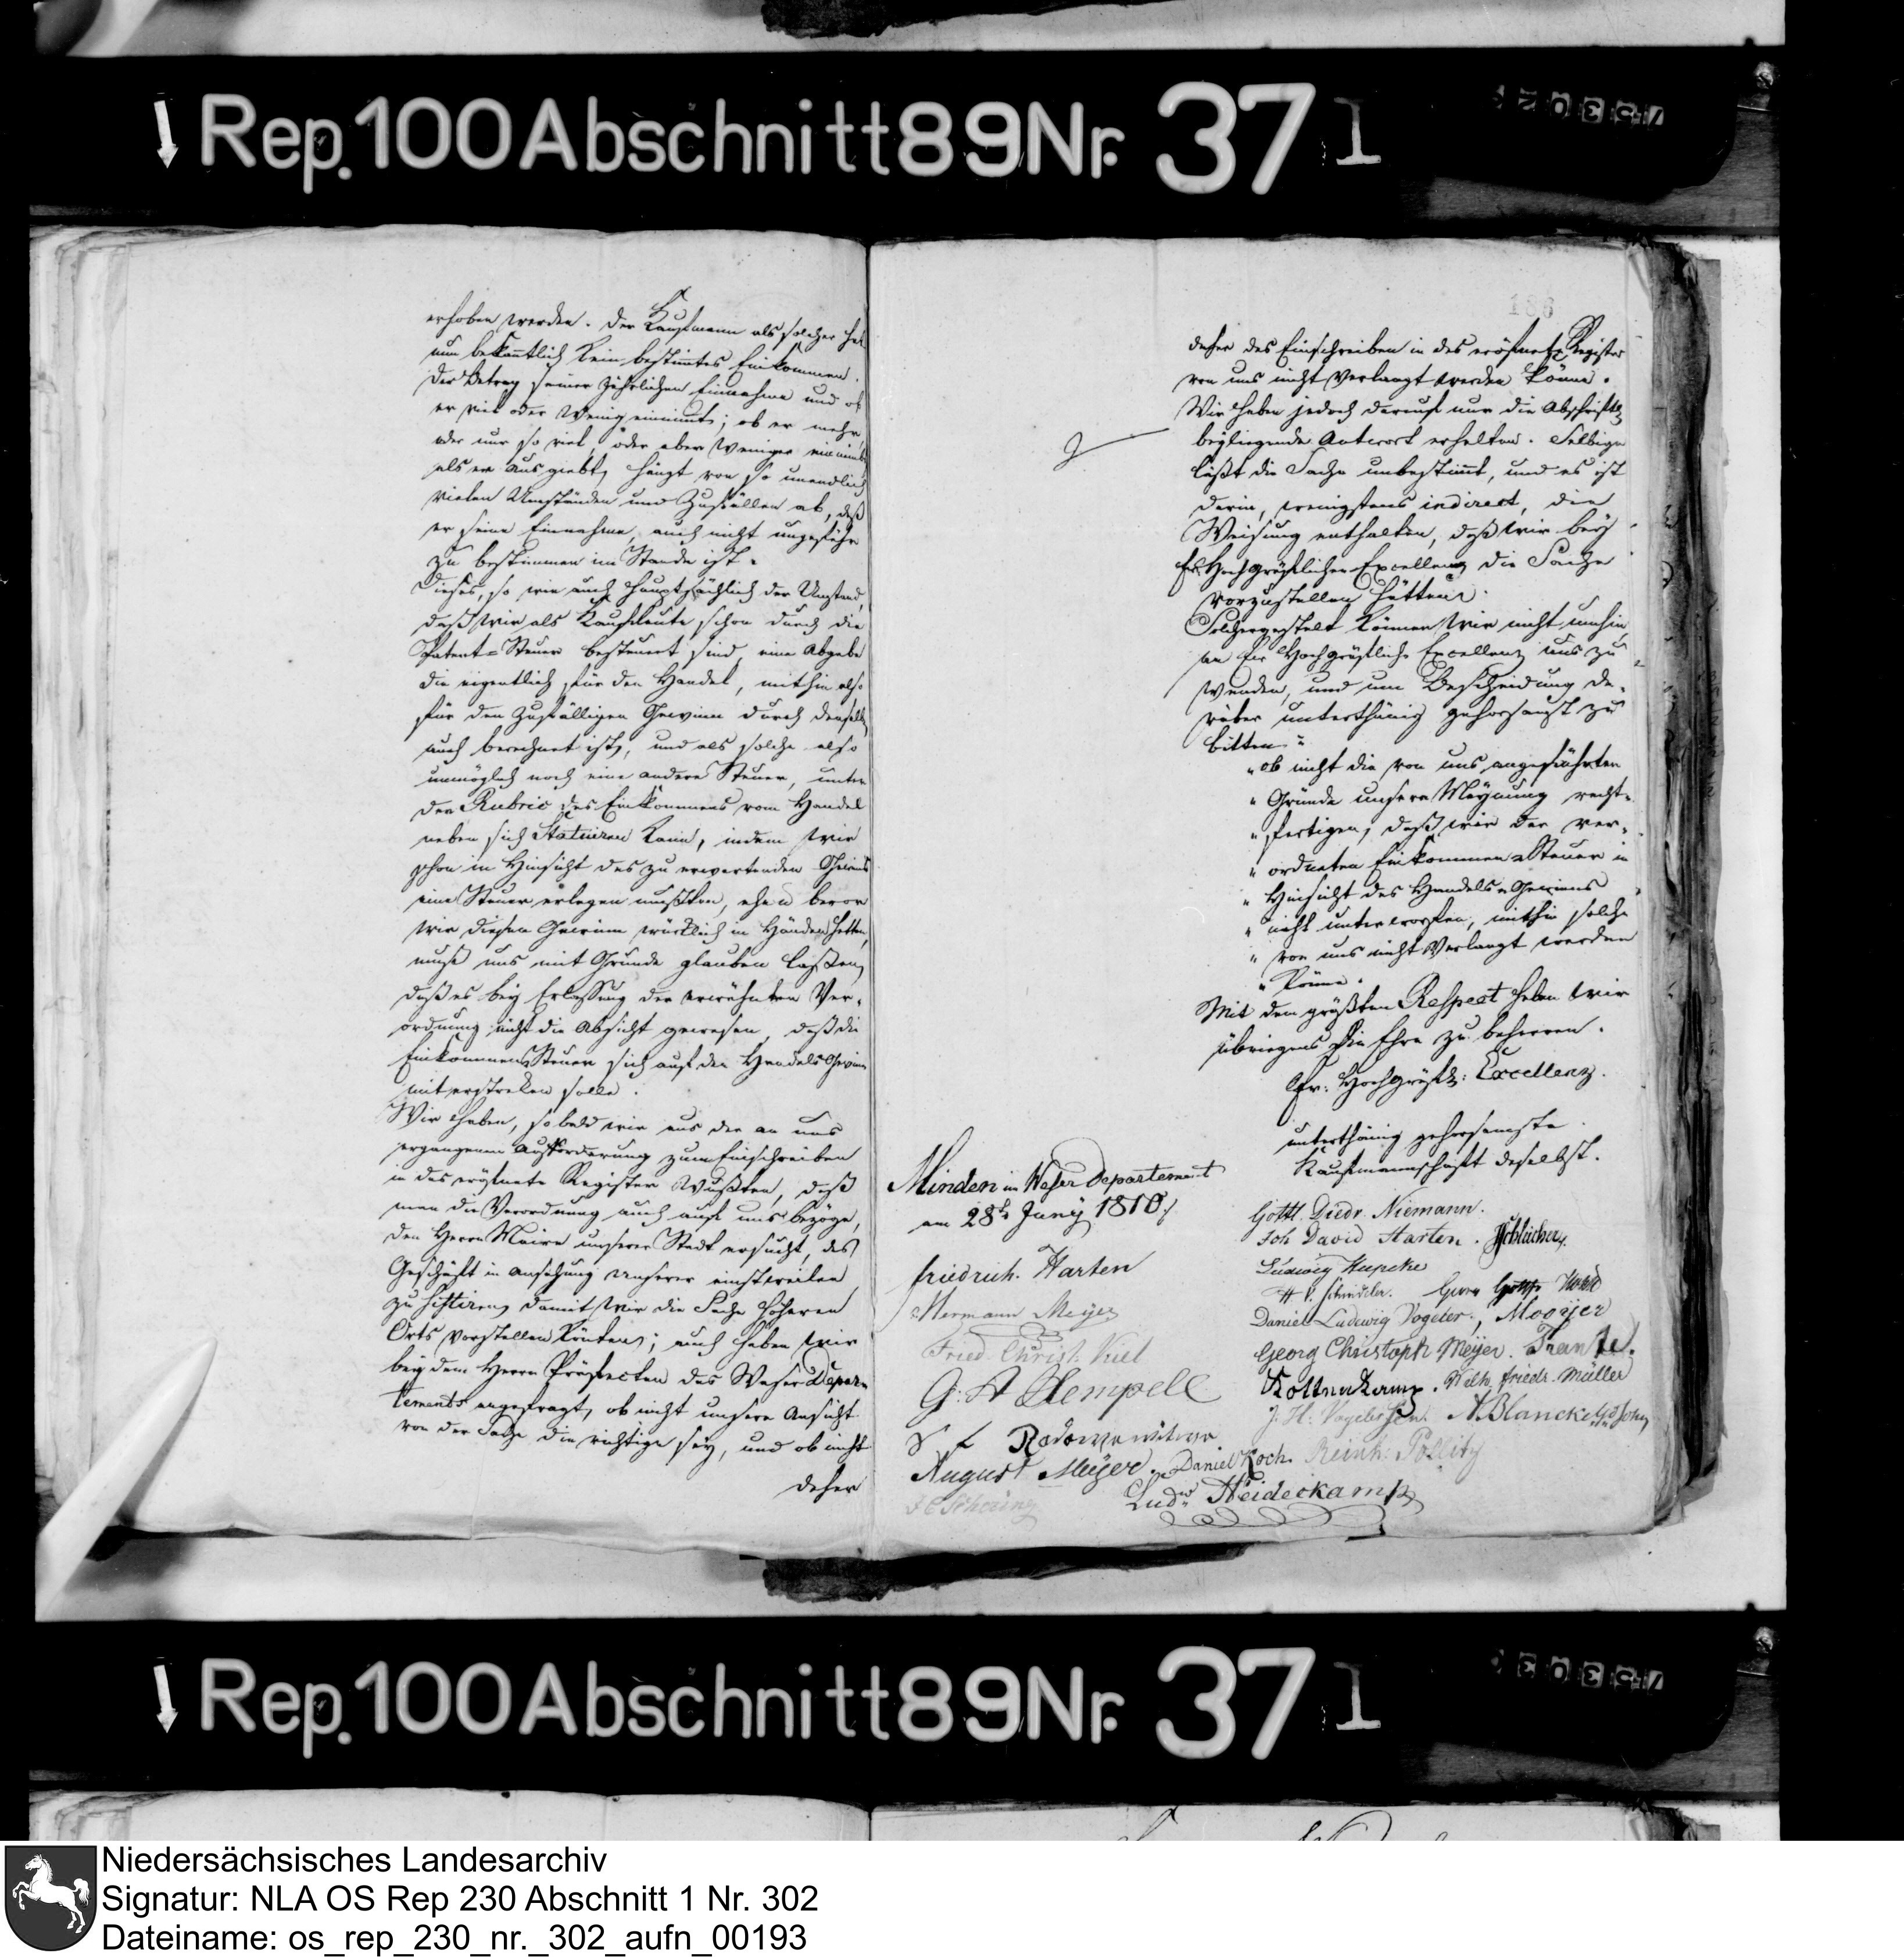 Rep. 100 Abschnitt 89 Nr. 371
erhoben werden. Der Kaufmann als solcher hat
nun bekanntlich kein bestimtes Einkommen.
Der Betrag seiner jährlichen Einnahme und ob
er viel oder wenig einnimt; ob er mehr,
oder nur so viel, oder aber weniger einnimt
als er ausgiebt, hängt von so unendlich
vielen Umständen und Zufällen ab, daß
er seine Einnahme, auch nicht ungefähr
zu bestimmen im Stande ist.
Dieses, so wie auch hauptsächlich der Umstand,
daß wir als Kaufleute schon durch die
Patent-Steuer besteuert sind, eine Abgabe
die eigentlich für den Handel, mithin also
für den zufälligen Gewinn durch denselben
auch berechnet ist, und als solche also
unmöglich noch eine andere Steuer, unter
der Rubric des Einkommens vom Handel
neben sich statuiren kann, indem wir
schon in Hinsicht des zu erwartenden Gewinns
eine Steuer erlegen mußten, ehe u bevor
wir diesen Gewinn würklich in Händen hatten,
muß uns mit Grunde glauben laßen,
daß es bey Erlassung der erwähnten Ver-
ordnung nicht die Absicht gewesen, daß die
Einkommens Steuer sich auf den Handels Gewinn
mit erstreken solle.
Wir haben, so bald wir aus der an uns
ergangenen Aufforderung zum Einschreiben
in das eröfnete Register wußten, daß
man die Verordnung auch auf uns bezöge,
den Herrn Maire unserer Stadt ersucht, das
Geschäft in Ansehung unserer einstweilen
zu sistiren, damit wir die Sache höheren
Orts vorstellen könten; auch haben wir
bey dem Herrn Präfecten des Weser Depar-
tements angefragt, ob nicht unsere Ansicht
von der Sache die richtige sey, und ob nicht
daher
186
daher das Einschreiben in das eröfnete Register
von uns nicht verlangt werden könne.
Wir haben jedoch darauf nur die Abschriftl.
beyliegende Antwort erhalten. Selbige
läßt die Sache unbestimt, und es ist
darin, wenigstens indirect, die
Weisung enthalten, daß wir bey
Er. Hochgräflichen Excellenz die Sache
vorzustellen hätten.
Solchergestalt können wir nicht umhin,
an Er. Hochgräfliche Excellenz uns zu
wenden, und um Bescheidung da-
rüber unterthänig gehorsamst zu
bitten:
"ob nicht die von uns angeführten
" Gründe unsere Meynung recht-
" fertigen, daß wir der ver-
" ordneten Einkommen Steuer in
" Hinsicht des Handels-Gewinns
" nicht unterworfen, mithin solche
" von uns nicht verlangt werden
" könne.
Mit dem größten Respect haben wir
übriegens die Ehre zu beharren.
Er: Hochgräfl: Excellenz.
unterthänig gehorsamste
Kaufmannschaft daselbst.
Minden im Weser Departement
am 28t Juny 1810.
Gottl. Diedr. Niemann.
Joh David Harten. Schleicher
friedrich. Harten
Ludwig Hupcke
Hermann Meyer
Daniel Ludwig Vogeler., Mooyer
Fried. Christ. Kiel
Georg Christoph Meyer.
G: A Hempell
Koltenkamp. Wilh. friedr. Müller
J. H: Vogeler A. Blancke
August Meyer. Daniel Koch.
Ludw Heideckamp
Rep. 100 Abschnitt 89 Nr. 371
Niedersächsisches Landesarchiv
Signatur: NLA OS Rep 230 Abschnitt 1 Nr. 302
Dateiname: os_rep_230_nr._302_aufn_00193